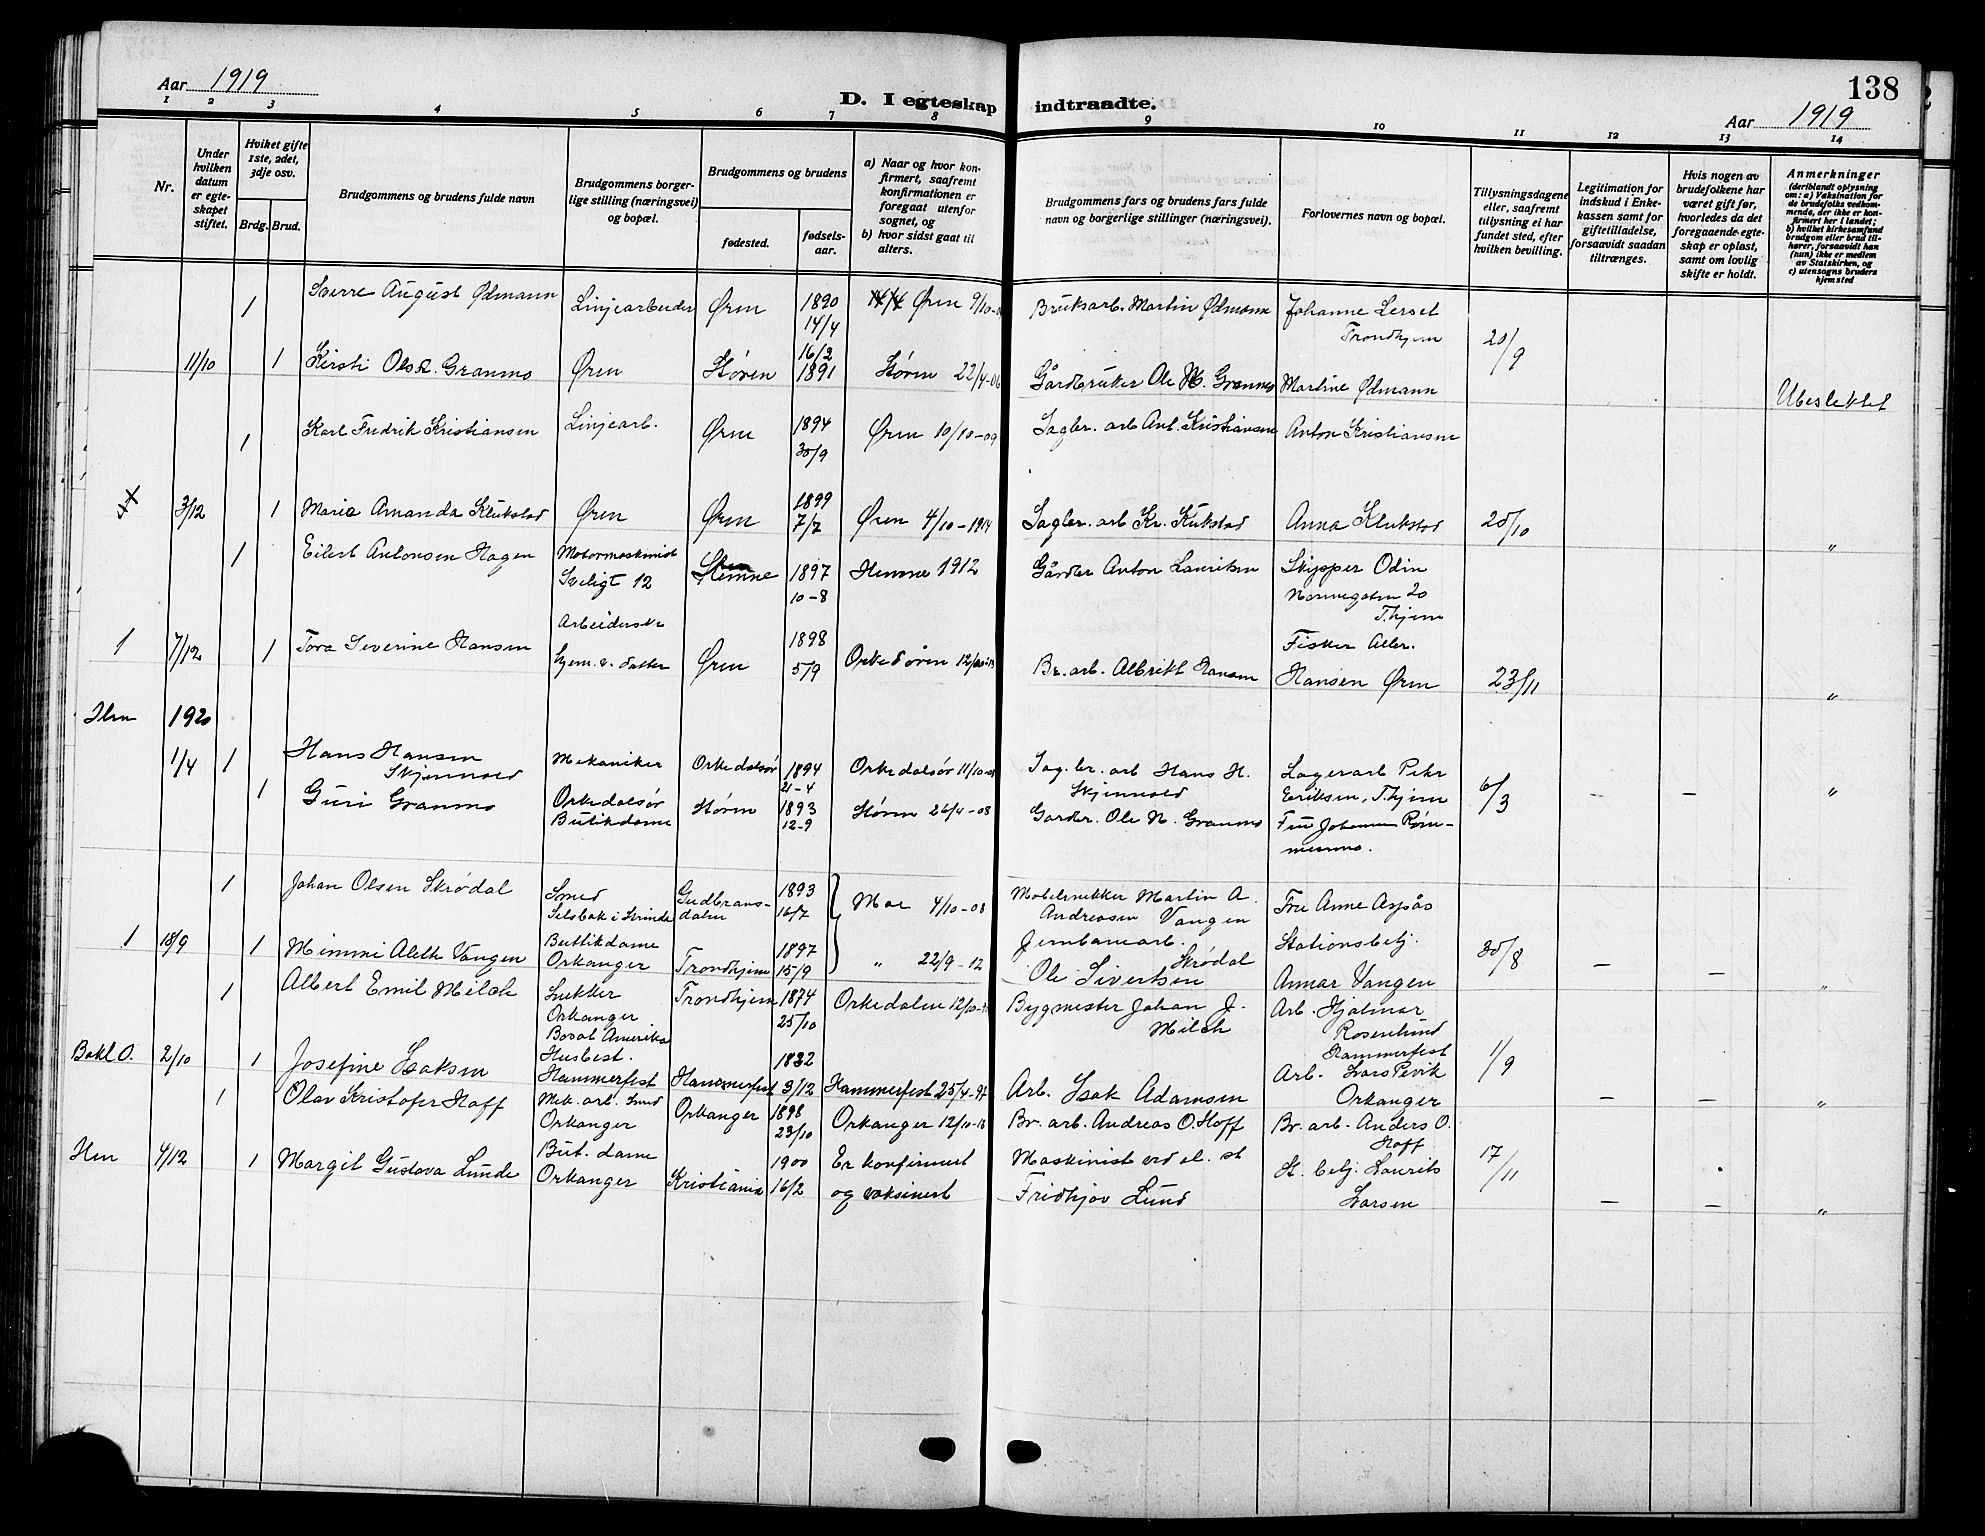 Aar 1919
D. I egteskap indtraadte.
138
Aar 1919
1 2 3 4 5 6 7 8 9 10 11 12 13 14
Nr.
Under hvilken datum er egteskapet stiftet.
Hviket gifte 1ste, 2det, 3dje osv.
Brdg. Brud.
Brudgommens og brudens fulde navn
Brudgommens borgerlige stilling (næringsvei) og bopæl.
Brudgommens og brudens
fødested.
fødselsaar.
a) Naar og hvor konfirmert, saafremt konfirmationen er foregaat utenfor sognet, og
b) hvor sidst gaat til alters.
Brudgommens fars og brudens fars fulde navn og borgerlige stillinger (næringsvei).
Forlovernes navn og bopæl.
Tillysningsdagene eller, saafremt tillysning ei har fundet sted, efter hvilken bevilling.
Legitimation for indskud i Enkekassen samt for giftetilladelse, forsaavidt saadan tiltrænges.
Hvis nogen av brudefolkene har været gift før, hvorledes da det foregaaende egteskap er opløst, samt om lovlig skifte er holdt.
Anmerkninger
(deriblandt oplysning om: a) Vaksination for de brudefolks vedkommende, der ikke er konfirmert her i landet;
b) hvilket kirkesamfund brudgom eller brud tilhører, forsaavidt han (hun) ikke er medlem av Statskirken, og
c) utensogns bruders hjemsted
1 Sverre August Ødmann Linjearbeider Øren 1890 14/4 Øren 9/10- Bruksarb. Martin Ødmann Johanne Lerset Trondhjem 20/9
11/10 1 Kirsti Olsd. Granmo Øren Støren 16/2 1891 Støren 22/4-06 Gårdbruker Ole N. Granmo Martine Ødmann Ubeslektet
1 Karl Fredrik Kristiansen Linjearb. Øren 1894 30/9 Øren 10/10-09 Sagbr. arb Ant. Kristiansen Anton Kristiansen
3/12 1 Maria Amanda Klukstad Øren Øren 1899 7/7 Øren 4/10-1914 Sagbr. arb Kr. Klukstad Anna Klukstad 20/10 "
1 Eilert Antonsen Hagen Motormaskinist 12 Hemne 1897 10-8 Hemne 1912 Gårdbr Anton Lauritsen Skipper Odin
20 T.hjem
1 7/12 1 Tora Severine Hansen Arbeiderske hjem. v. datter Øren 1898 5/9 Orkedøren Br. arb. Albrikt Hansen Fisker Aller. Hansen Øren 23/11 "
1920
1/4 1 Hans Hansen Skjenvold Mekaniker Orkedalsør 1894 21-4 Orkedalsør 11/10- Sag. br. arb Hans H. Skjenvold Lagerarb Peter Eriksen, T.hjem 6/3 — — "
1 Guri Granmo Orkedalsør Butikdame Støren 1893 12-9 Støren 26/4-08 Gardbr. Ole N. Granmo Fru Johanna
1 Johan Olsen Skrødal Smed Selsbak i Strinda Gudbrandsdalen 1893 16/7 Moe 4/10-08 Møbelsnekker Martin A. Andreasen Vangen Fru Anne Aspås
1 18/9 1 Mimmi Aleth Vangen Buttikdame Orkanger Trondhjem 1897 15/9 " 22/9-12 Jernbanearb. Ole Sivertsen Skrødal Stationsbetj. Annar Vangen 30/8 — — "
1 Albert Emil Milch Snekker Orkanger Bosat Amerika Trondhjem 1874 25/10 Orkedalen 12/10- Bygmester Johan J. Milch Arb. Hjalmar Rosenlund Hammerfest
2/10 1 Josefine Isaksen Husbest. Hammerfest Hammerfest 1882 3/12 Hammerfest 25/4-97 Arb. Isak Adamsen Arb. Lars Pevik Orkanger 1/9 — — "
1 Olav Kristofer Hoff Mek. arb. Smed Orkanger Orkanger 1898 23/10 Orkanger 12/10-13 Br. arb. Andreas O. Hoff Br. arb. Anders O. Hoff
4/12 1 Margit Gustava Lunde But. dame Orkanger Kristiania 1900 16/2 Er konfirmert og vaksinert Maskinist ved el. st Fridhjov Lund St. betj. Laurits Larsen 17/11 — — "